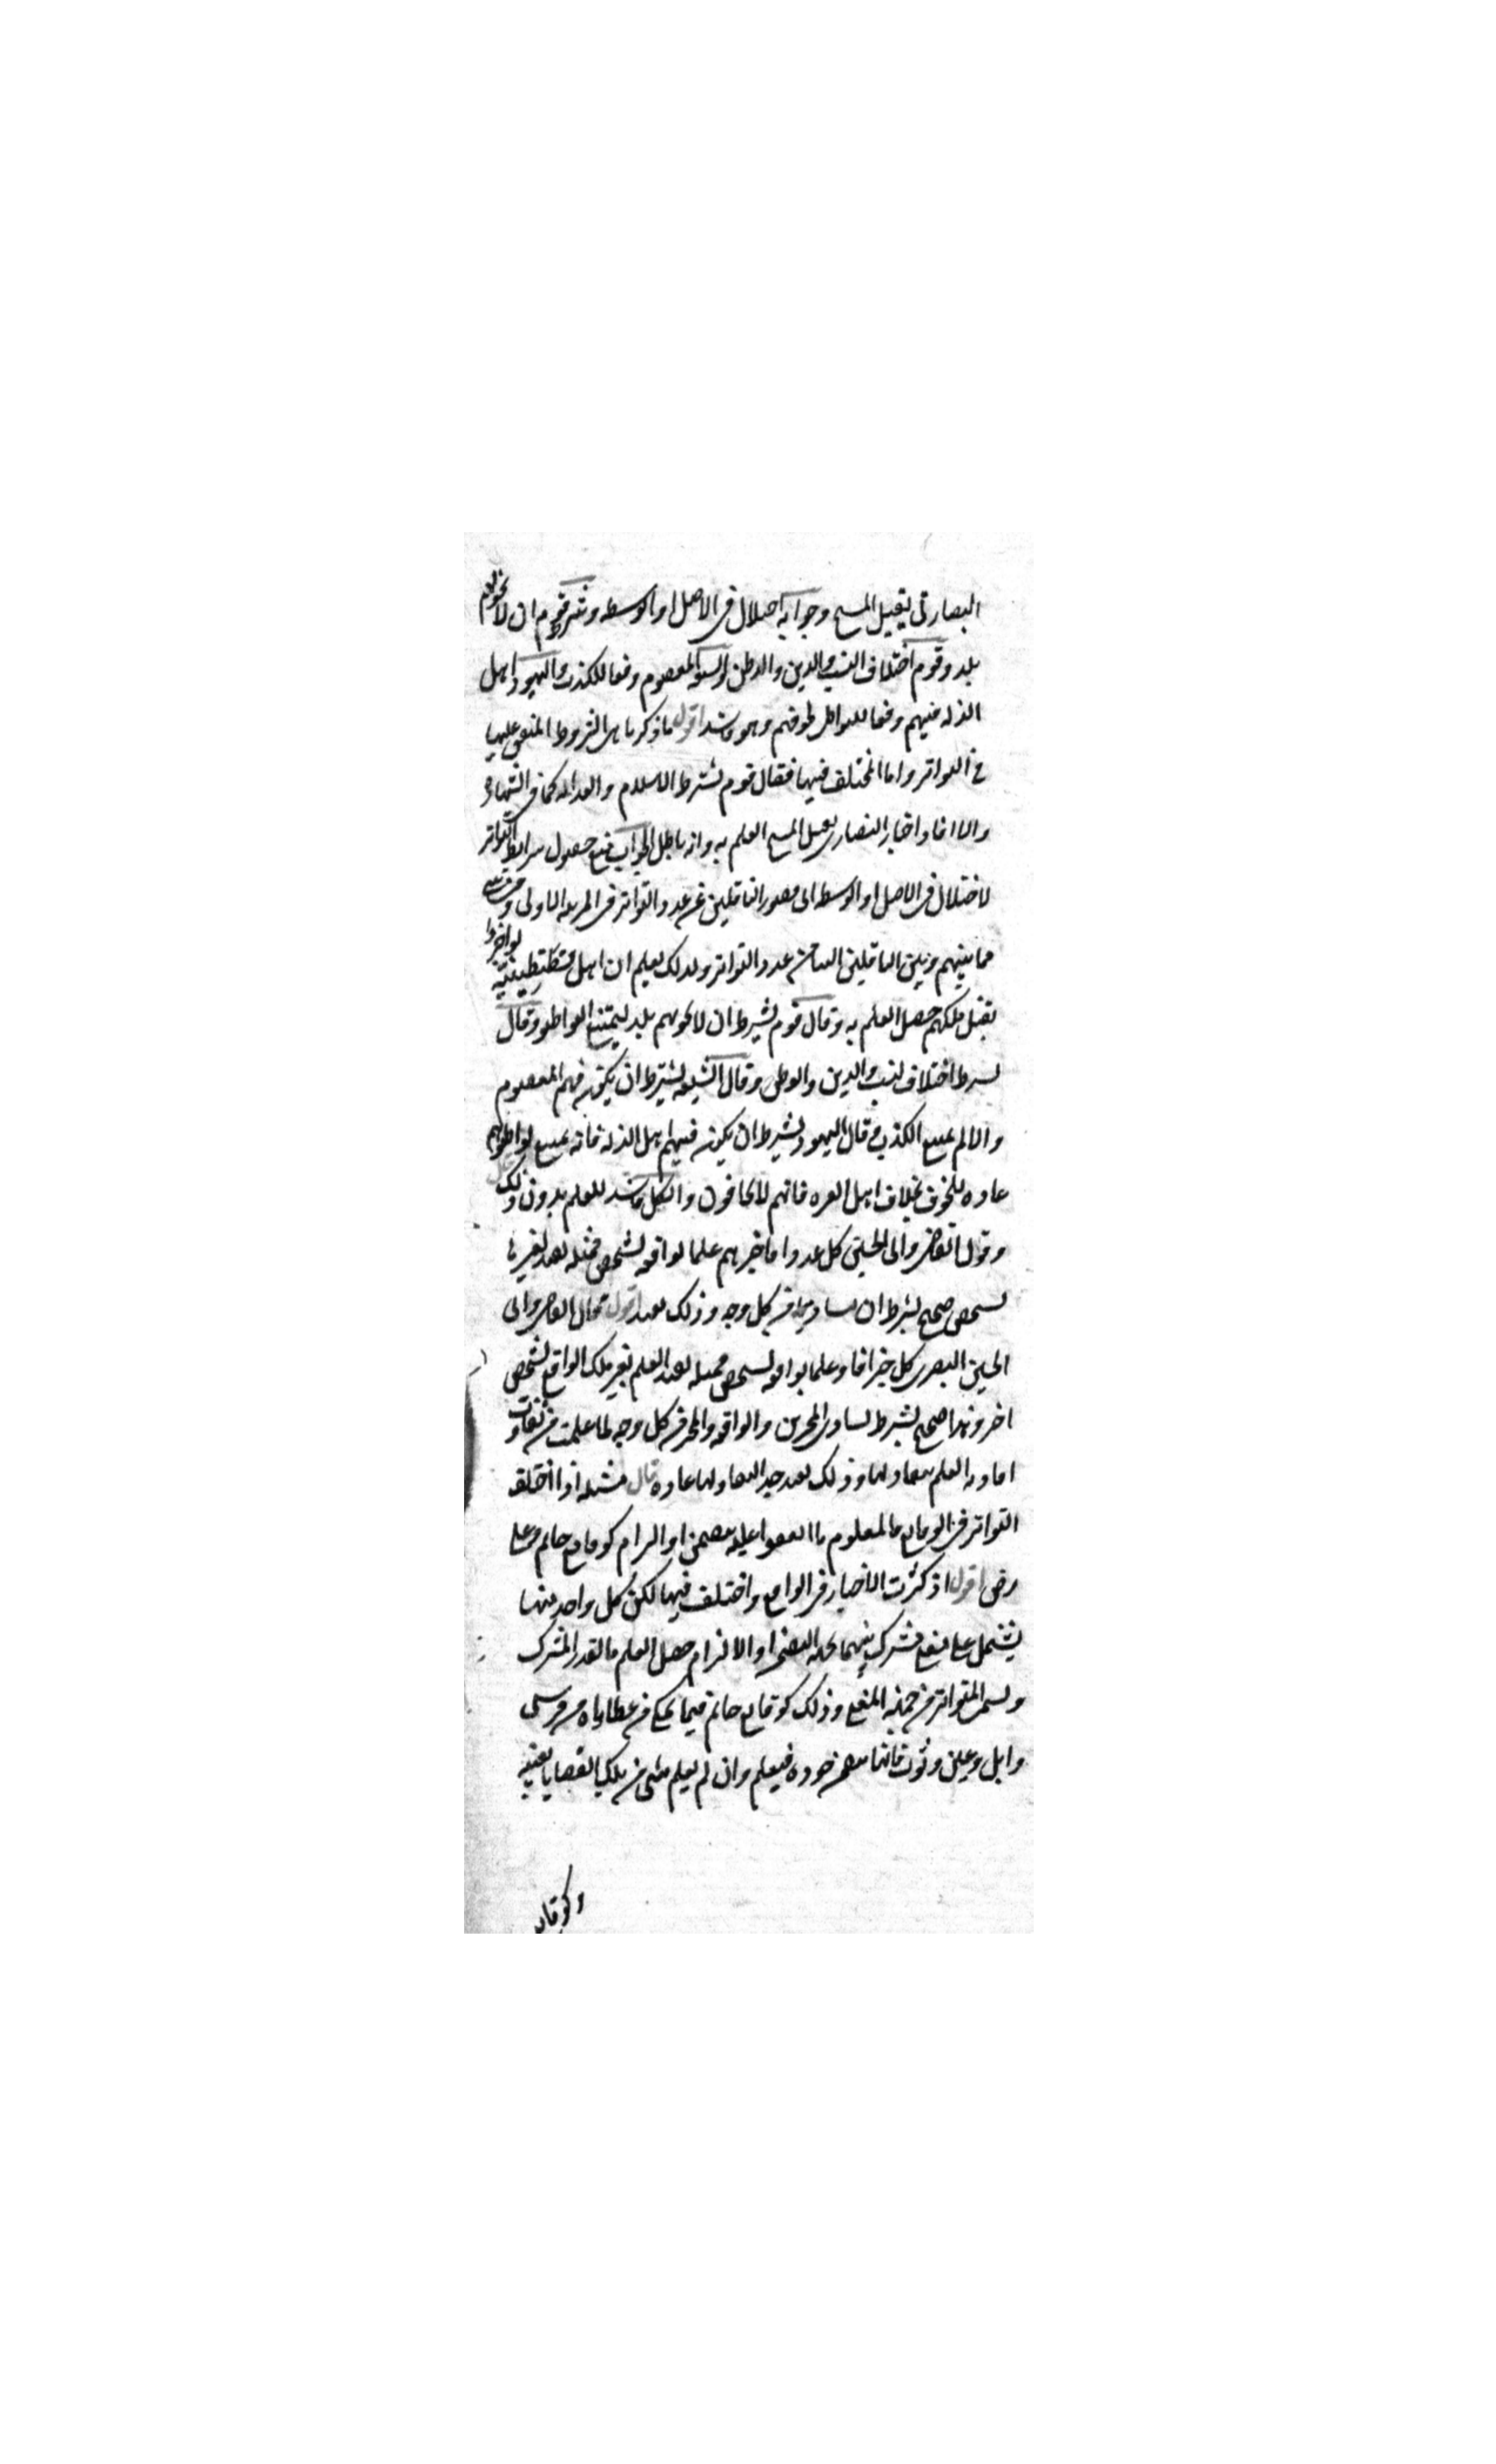 النصارى بقتل المسيح وجوابه اختلال فى الاصل او الوسط وشرط قوم ان لا يحويهم
بلد وقوم اختلاف النسب والدين والوطن والشيعة المعصوم دفعا للكذب واليهود اهل
الذلة فيهم دفعا للتواطى لخوفهم وهو فاسد اقول ما ذكرنا هى الشروط المتفق عليها
فى التواتر واما المختلف فيها فقال قوم يشترط الاسلام والعدالة كما فى الشهادة
والا افاد اخبار النصارى بقتل المسيح العلم به وانه باطل الجواب منع حصول شرايط التواتر
لاختلال فى الاصل او الوسط اى قصور الناقلين عن عدد التواتر فى المرتبة الاولى او فى شىء
مما بينهم وبين الناقلين الينا من عدد التواتر ولذلك يعلم ان اهل قسطنطينية لو اخبروا
بقتل ملكهم حصل العلم به وقال قوم يشترط ان لا يحويهم بلد ليمتنع التواطؤ وقال
يشترط اختلاف النسب والدين والوطن وقال الشيعة يشترط ان يكون فيهم المعصوم
والا لم يمتنع الكذب وقال اليهود يشترط ان يكون فيهم اهل الذلة فانه يمتنع تواطؤهم
عادة للخوف بخلاف اهل العزة فانهم لا يخافون والكل فاسد للعلم بدون ذلك
وقول القاضى وابى الحسين كل عدد افاد خبرهم علما بواقعة لشخص فمثله يفيد بغيرها
لشخص صحيح بشرط ان يتساويا من كل وجه وذلك بعيد اقول قال القاضى وابو
الحسين البصرى كل خبر افاد علما بواقعة لشخص فمثله يفيد العلم بغير تلك الواقعة لشخص
اخر وهذا صحيح بشرط تساوى الخبرين والواقعة والمخبر من كل وجه لما علمت من تفاوت
افادة العلم بتفاوتها وذلك بعيد جدا لتفاوتها عادة قال مسئلة اذا اختلف
التواتر فى الوقايع فالمعلوم ما اتفقوا عليه بتضمن او التزام كوقايع حاتم وعلى
رضى اقول اذ كثرت الاخبار فى الوقايع واختلف فيها لكن كل واحد منها
يشتمل على معنى مشترك بينهما بجهة التضمن او الالتزام حصل العلم بالقدر المشترك
ويسمى المتواتر من جهة المعنى وذلك كوقايع حاتم فيما يحكى من عطاياه من فرس
وابل وعين وثوب فانها تتضمن جوده فيعلم وان لم يعلم شىء من تلك القضايا بعينه
وكوقايع